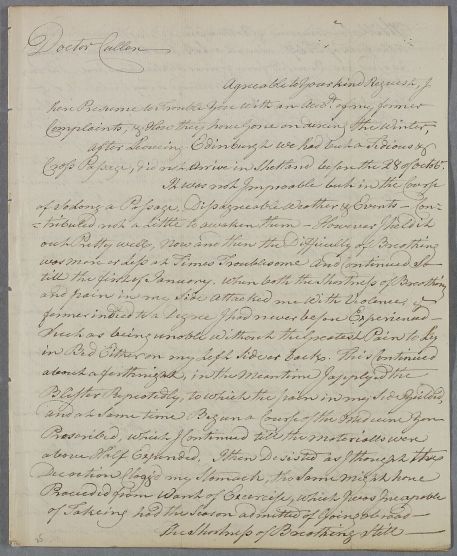 Doctor Cullen
Agreeable to your kind Request, I
here Presume to Trouble you with an Acct. of my former
Complaints, & How they have Gone on during the Winter,
after Leaving Edinburgh we had but a Tedious &
Cross Passage, did not Arrive in Shetland before the 28 of Octbr.
It was not Improbable but in the Course
of So Long a Passage, Disagreeable Weather & Events – Con-
-tributed not a Little to awaken them – However I held it
out Pretty well, Now and then the Difficulty of Breathing
was more or less at Times Troublesome And Continued So
till the first of January, when both the Shortness of Breathing
and pain in my Side Attacked me With Violence, &
former indeed to a Degree I had never before Experienced –
Such as being unable Without the Greatest Pain to Ly
in Bed Either on my Left Side or back. This Continued
about a forthnight, in the Meantime I applyed the
Blister Repeatedly, to which the pain in my Side Yielded,
and at Same time Began a Course of the Medicine you
Prescribed, which I Continued till the Materials were
above Half Expended. I then Desisted as I thought this
Decoction Clogg'd my Stomach, tho Same might have
Proceeded from Want of Excercise, which I was Incapable
of Takeing had the Season admitted of Going abroad –
The Shortness of Breathing Still –